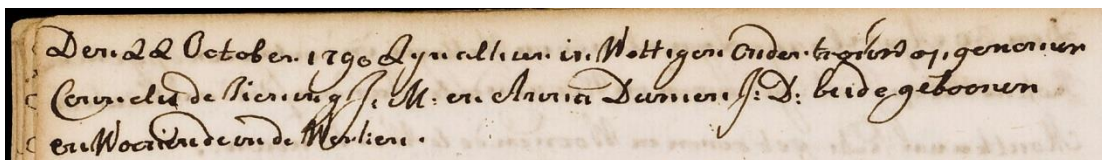 Den 22 October 1790 Zyn alhier in Wettigen Ondertrouw op genomen
Cornelis de Jierung J: M: en Anna Damen J: D: beide geboonen
en Woonende onde Werken.